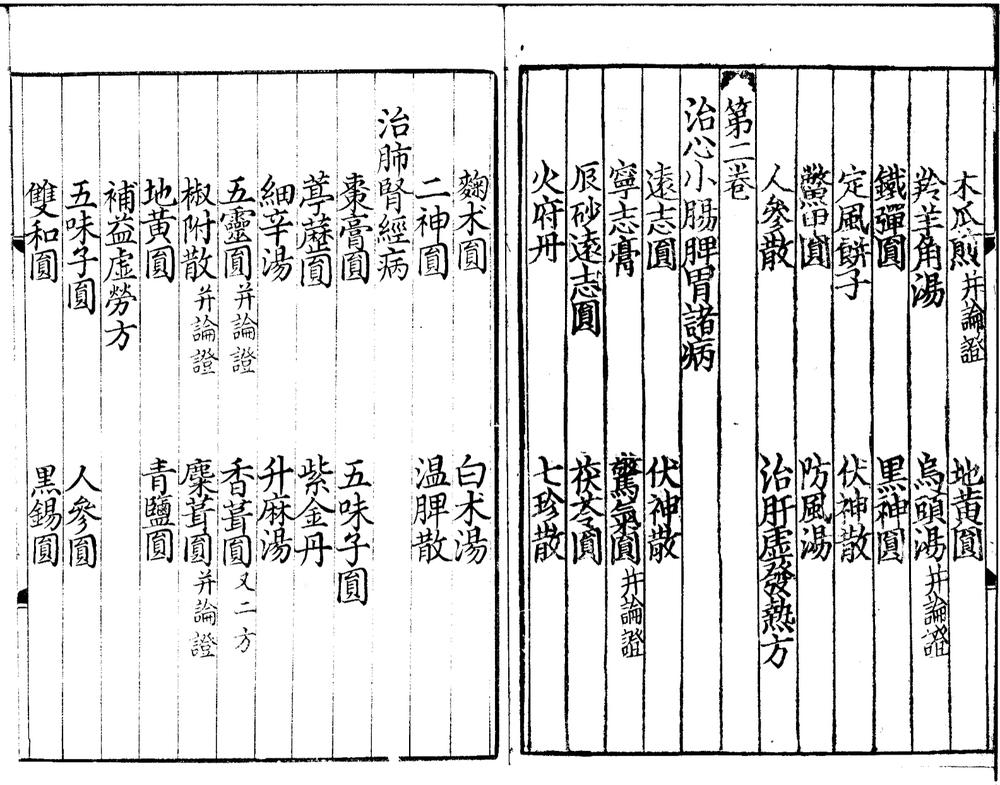 木瓜煎并論證　地黃圓
羚羊角湯　烏頭湯并論證
鐵彈圓　黑神圓
定風餅子　伏神散
驚田圓　防風湯
人參散　治肝虛發熱方
第二卷
治心小腸脾胃諸病
遠志圓　伏神散
寧志膏　驚氣圓并論證
辰砂遠志圓　茯苓圓
火府丹　七珍散
麴术圓　白术湯
二神圓　温脾散
治肺腎經病
棗膏圓　五味子圓
葶藶圓　紫金丹
細辛湯　升麻湯
五靈圓并論證　香茸圓又二方
椒附散并論證　麋茸圓并論證
地黃圓　青鹽圓
補益虛勞方
五味子圓　人參圓
雙和圓　黑錫圓